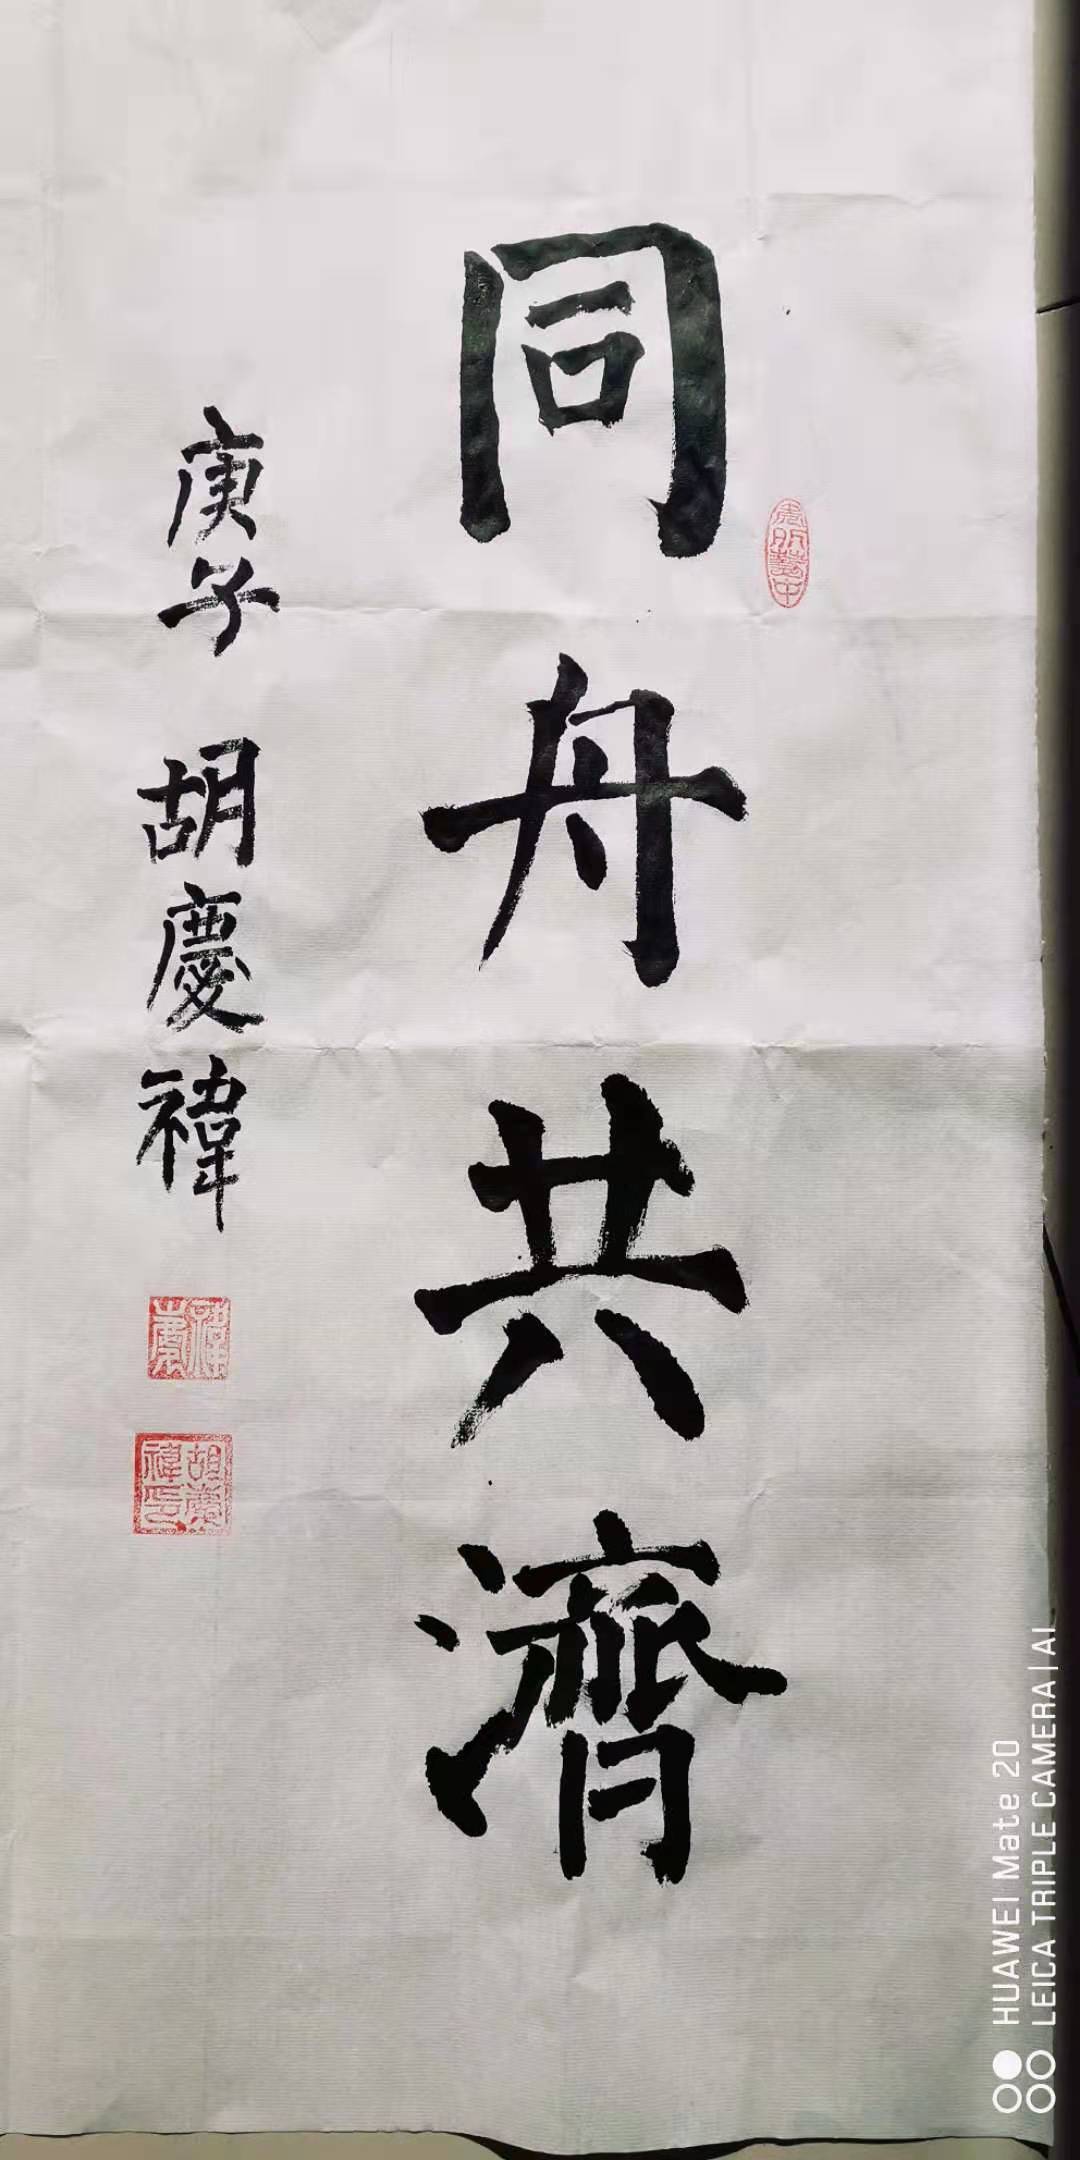 同舟共濟
庚子 胡慶禕
胡慶禕印
HUAWEI Mate 20
LEICA TRIPLE CAMERA | AI